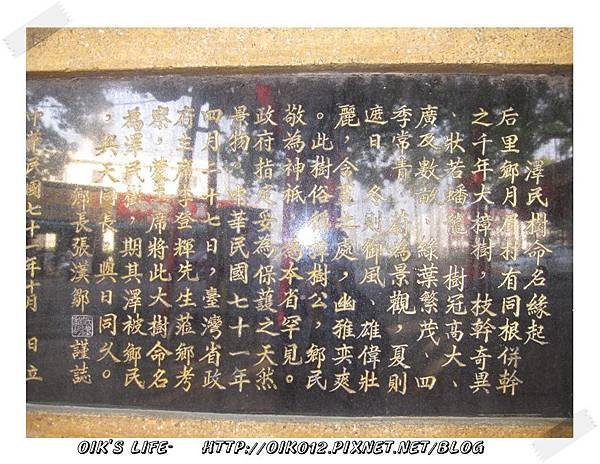 澤民樹命名緣起
后里鄉月眉村有同根併幹
之千年大樟樹，枝幹奇異
、狀若蟠龍、樹冠高大、
廣及數畝、綠葉繁茂、四
季常青、蔚為景觀，夏則
遮日、冬則御風、雄偉壯
麗，合 之處，幽雅奕爽
。此樹俗稱 樹公，鄉民
敬為神祇、為本省罕見。
政府指定妥為保護之天然
景物。中華民國七十一年
四月二十七日，臺灣省政
府主席李登輝先生蒞鄉考
察，蒙主席將此大樹命名
為澤民樹，期其澤被鄉民
，與天同長，與日同久。
鄉長張漢鄒 謹誌
中華民國七十一年十月 日立
OIK'S LIFE- HTTP://OIK012.PIXNET.NET/BLOG